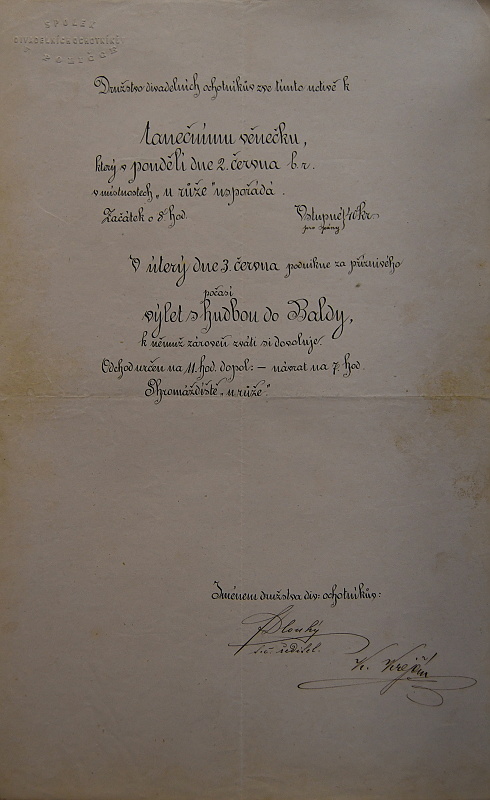 SPOLEK
DIVADELNÍCH OCHOTNÍKŮ
Družstvo divadelních ochotníkův zve tímto uctivě k
tanečnímu věnečku,
který v pondělí dne 2. června b. r.
v místnostech „u růže" uspořádá.
Začátek o 8. hod. Vstupné 40 kr
pro pány
V úterý dne 3. června podnikne za příznivého
počasí
výlet s hudbou do Baldy,
k němuž zároveň zváti si dovoluje.
Odchod určen na 11. hod. dopol: – návrat na 7. hod.
Shromáždiště „u růže".
Jménem družstva div: ochotníkův:
Dlouhý
ředitel.
K. Krejčí